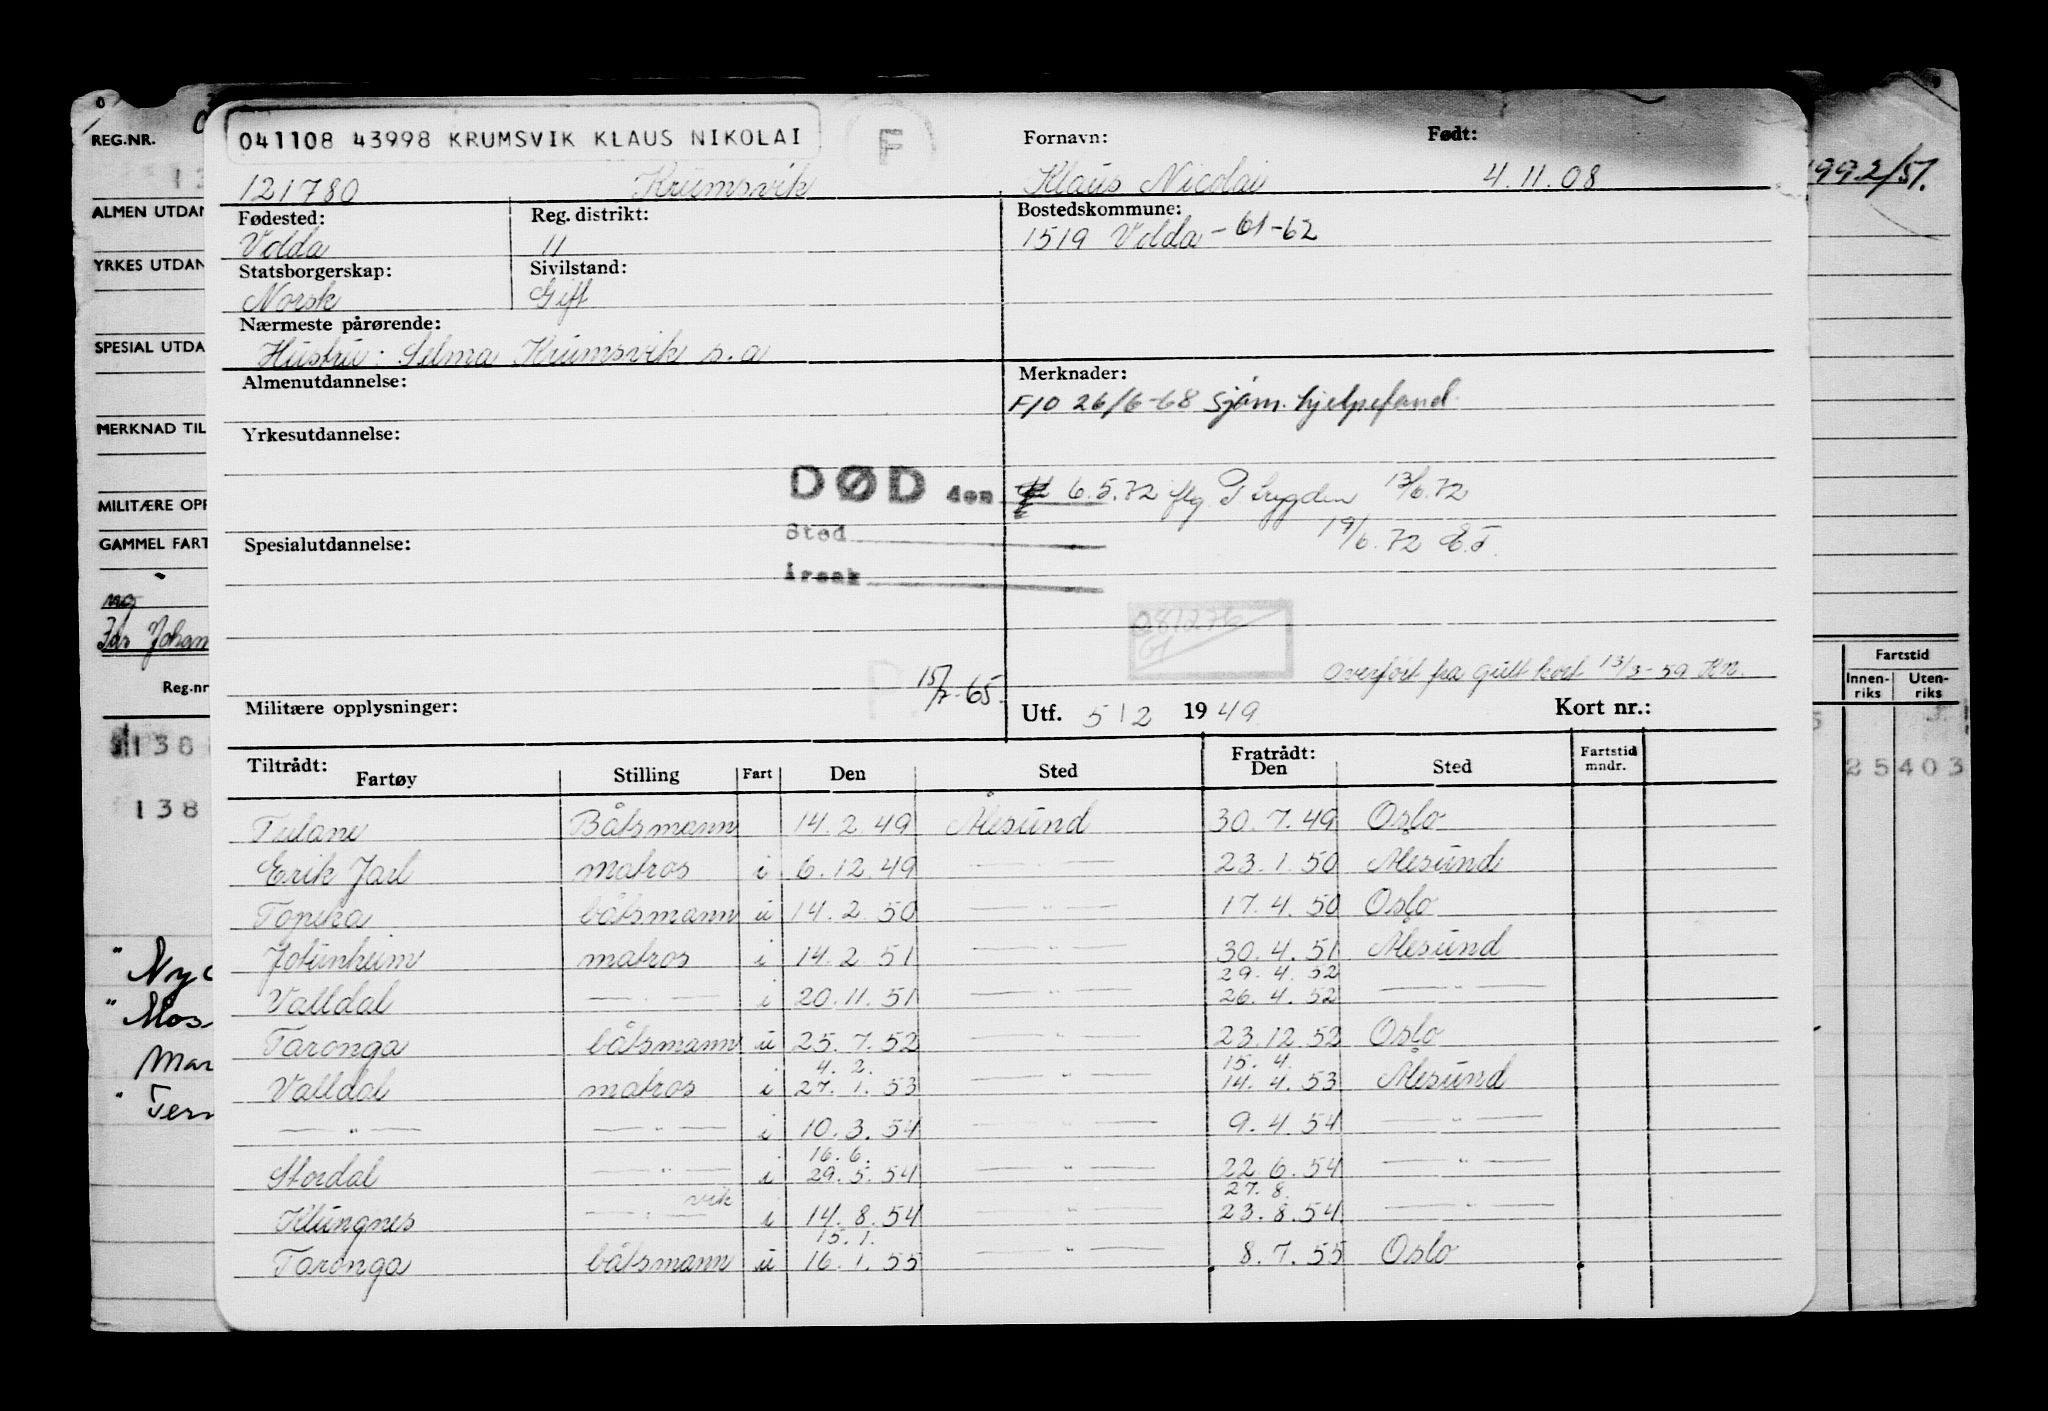 041108 43998 KRUMSVIK KLAUS NIKOLAI
F
Fornavn: Født:
REG.NR.
121780 Krumsvik Klaus Nicolai 4.11.08
992/51.
ALMEN UTDAN
Fødested: Reg. distrikt: Bostedskommune:
Volda 11 1519 Volda - 61-62
YRKES UTDAN
Statsborgerskap: Sivilstand:
Norsk Gift
Nærmeste pårørende:
SPESIAL UTDA
Hustru: Selma Krumsvik s.a
Almenutdannelse: Merknader:
F/O 26/6-68 Sjøm. hjelpefond
MERKNAD TIL
Yrkesutdannelse:
DØD den 6.5.72 flg. T. Trygden 13/6.72
MILITÆRE OPP
Sted 19/6.72 E.T.
GAMMEL FART
Spesialutdannelse:
Årsak
081276
Før Johan
Overført fra gult kort 13/3-59 KN.
15/7-65.
Militære opplysninger: Utf. 5/2 1949 Kort nr.:
Reg.nr
Fartstid
Innen-riks Uten-riks
Tiltrådt: Fratrådt:
Fartøy Stilling Fart Den Sted Den Sted Fartstid mndr.
138
25403
138
Tulane Båtsmann 14.2.49 Ålesund 30.7.49 Oslo
Erik Jarl matros i 6.12.49 — " — 23.1.50 Ålesund
Topeka båtsmann u 14.2.50 — " — 17.4.50 Oslo
Jotunheim matros i 14.2.51 — " — 30.4.51 Ålesund
29.4.52
Valldal — " — i 20.11.51 — " — 26.4.52 — " —
Taronga båtsmann u 25.7.52 — " — 23.12.52 Oslo
4.2. 15.4.
Valldal matros i 27.1.53 — " — 14.4.53 Ålesund
— " — — " — i 10.3.54 — " — 9.4.54 — " —
16.6.
Stordal — " — i 29.5.54 — " — 22.6.54 — " —
vik 27.8.
Klungnes — " — i 14.8.54 — " — 23.8.54 — " —
15.1.
Taronga båtsmann u 16.1.55 — " — 8.7.55 Oslo
" Mos
Mar